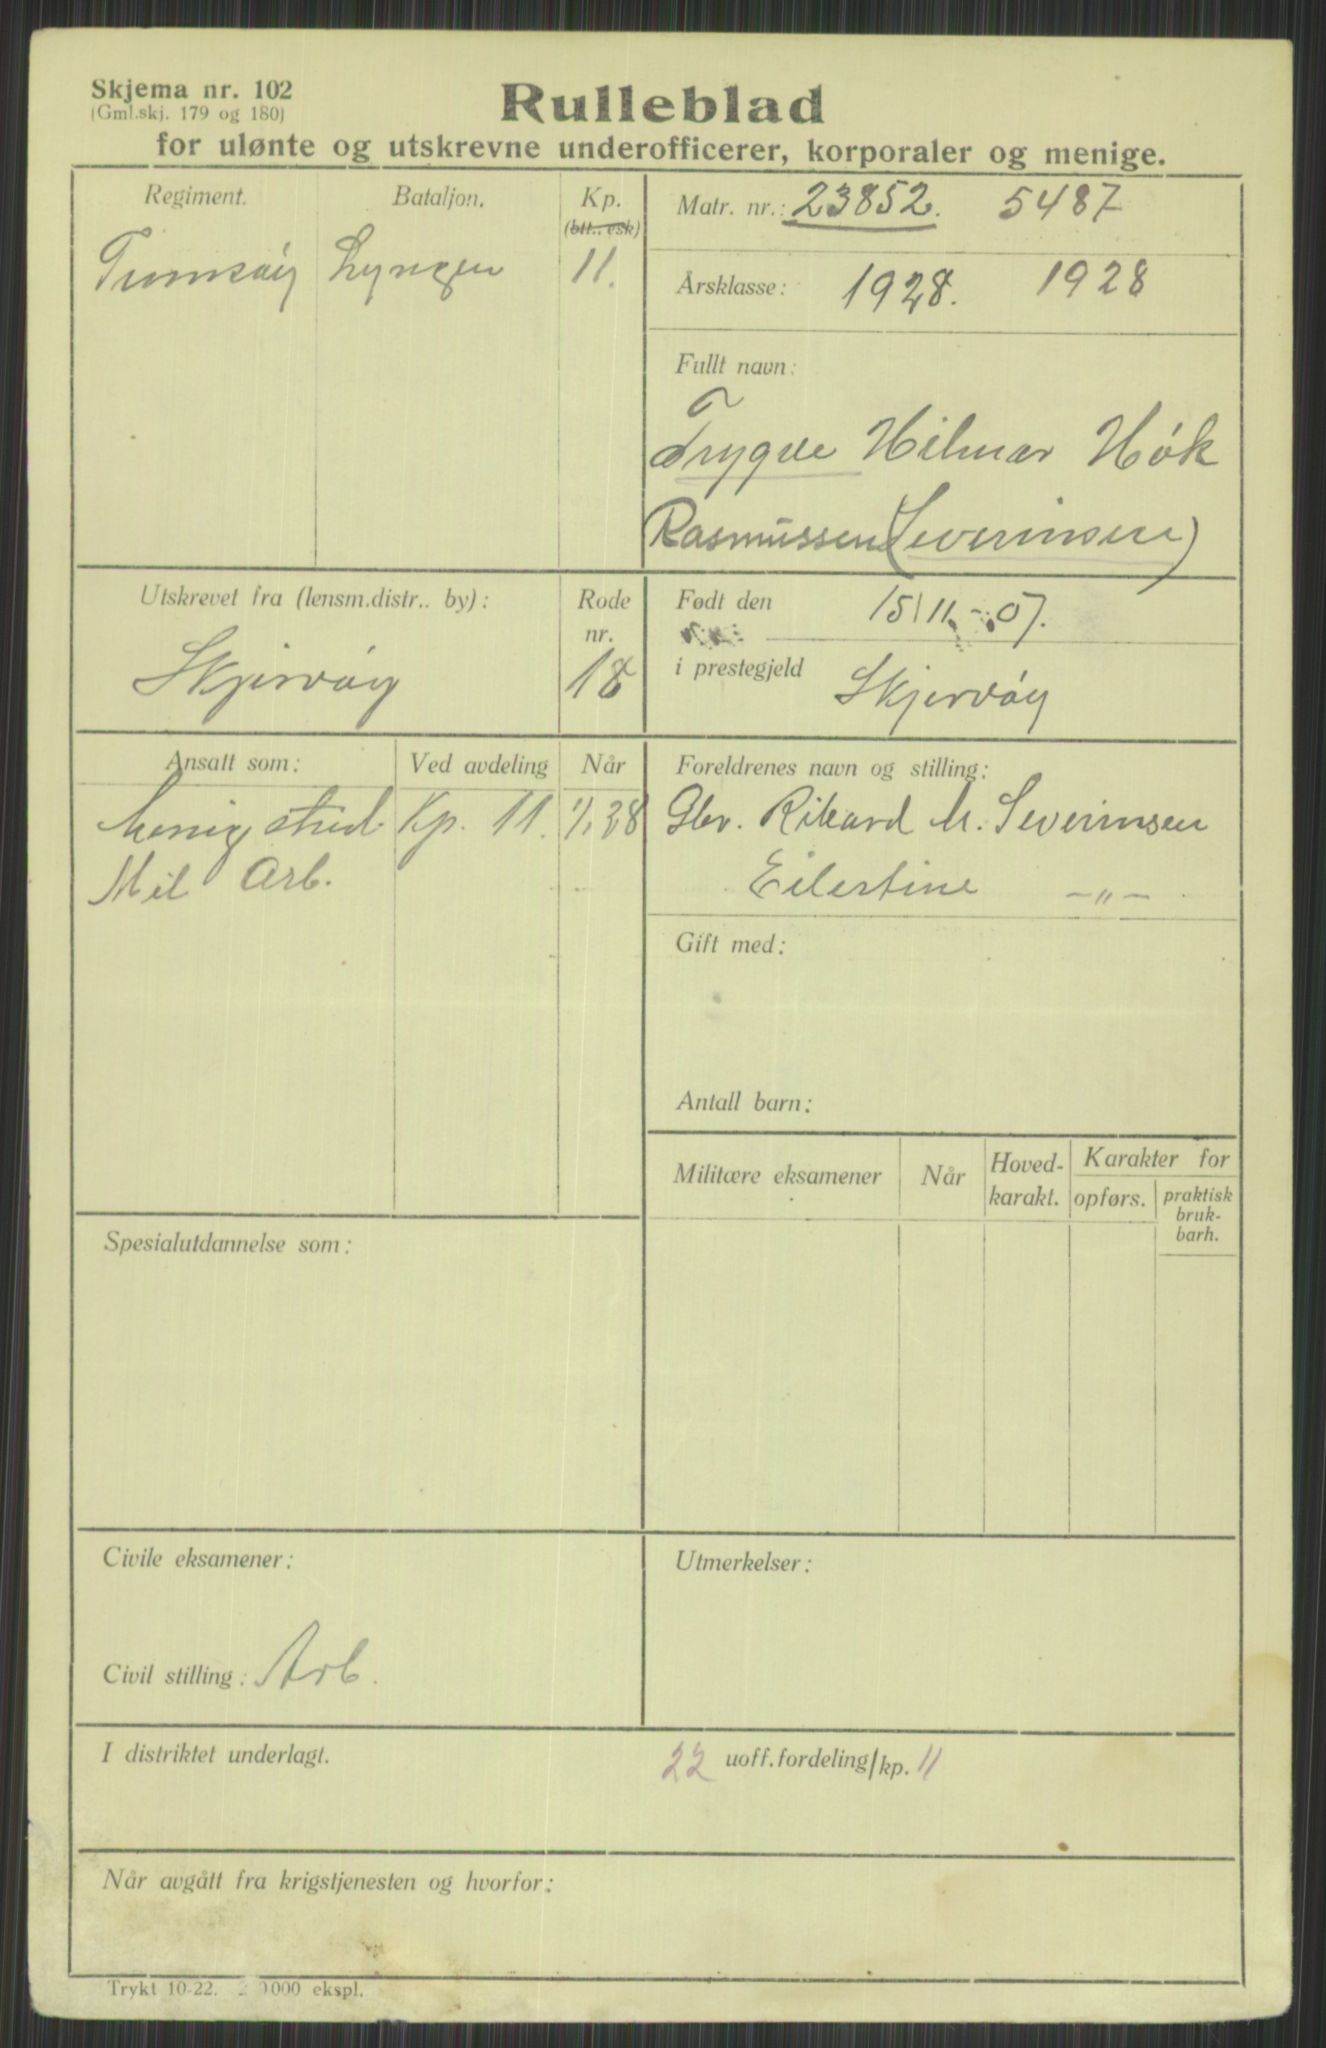 Skjema nr. 102
(Gml.skj. 179 og 180)
Rulleblad
for ulønte og utskrevne underofficerer, korporaler og menige.
Regiment. Bataljon. Kp.
(btt., esk)
Lyngen 11.
Matr. nr.: 23852. 5487
Årsklasse: 1928. 1928
Fullt navn:
Trygve Hilmar Hók
Rasmussen (Severinsen)
Utskrevet fra (lensm.distr.. by): Rode nr.
Skjervóy 18
Født den 15/11.-07.
i prestegjeld Skjervóy
Ansatt som: Ved avdeling Når
menig Kp. 11. 1/1 28
Mil Arb.
Foreldrenes navn og stilling:
Gbr. Rikard M. Severinsen
Eilertine -"-
Gift med:
Antall barn:
Militære eksamener Når Hoved-karakt. Karakter for
opførs. praktisk bruk-barh.
Spesialutdannelse som:
Civile eksamener:
Civil stilling: Arb.
Utmerkelser:
I distriktet underlagt.
22 uoff.fordeling/kp. 11
Når avgått fra krigstjenesten og hvorfor:
Trykt 10-22. 000 ekspl.